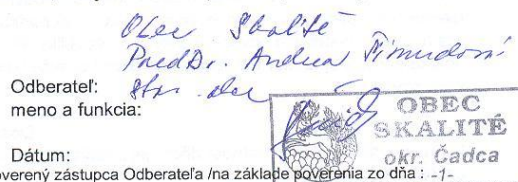 Obec Skalité
PaedDr. Andrea Šimurdová
Odberateľ:
meno a funkcia:
OBEC
SKALITÉ
okr. Čadca
Dátum:
overený zástupca Odberateľa /na základe poverenia zo dňa : -1-